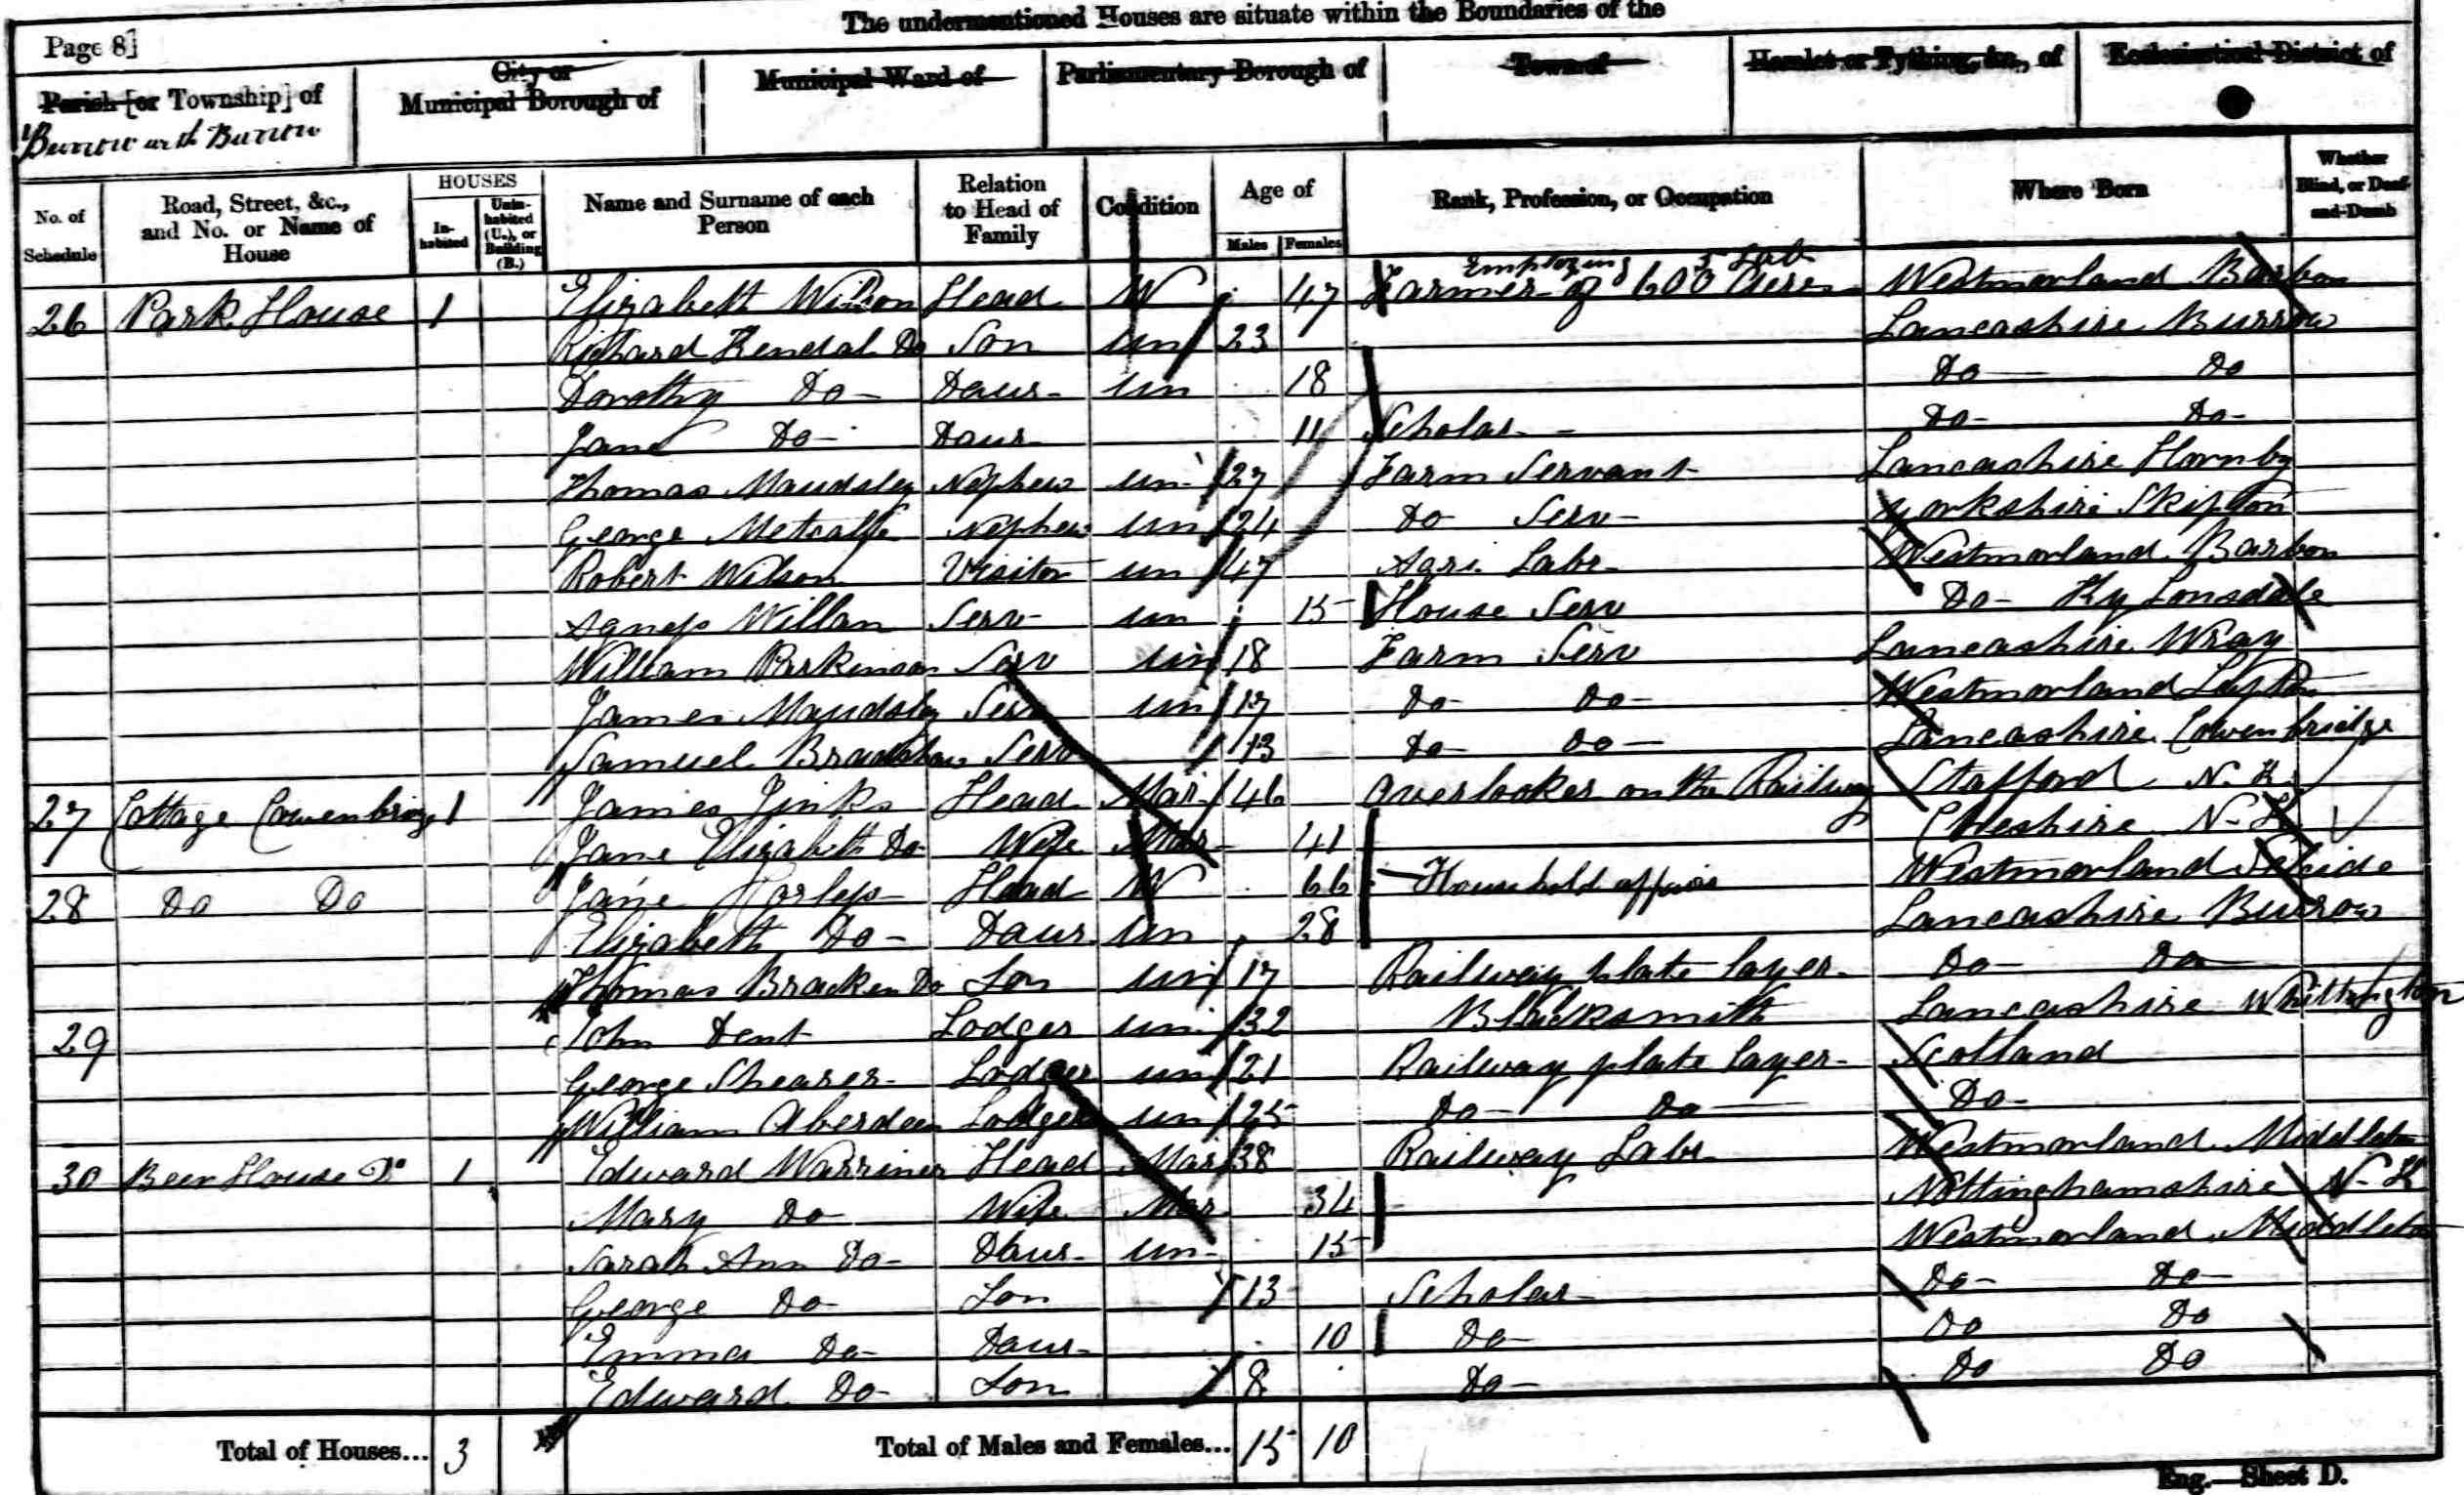 The undermentioned Houses are situate within the Boundaries of the
Page 8]
Parish [or Township] of
City or Municipal Borough of
Municipal Ward of
Parliamentary Borough of
Town of
Hamlet or Tything, &c., of
Ecclesiastical District of
Burrow with Burrow
No. of Schedule
Road, Street, &c., and No. or Name of House
HOUSES
In-habited
Unin-habited (U.), or Building (B.)
Name and Surname of each Person
Relation to Head of Family
Condition
Age of
Males
Females
Rank, Profession, or Occupation
Where Born
Whether Blind, or Deaf-and-Dumb
Employing 5 Labs
26 Park House 1 Elizabeth Wilson Head W 47 Farmer of 600 Acres Westmorland Barbon
Richard Kendal Do Son Un 23 Lancashire Burrow
Dorothy Do Daur Un 18 Do Do
Jane Do Daur 11 Scholar Do Do
Thomas Maudsley Nephew Un 27 Farm Servant Lancashire Hornby
George Metcalfe Nephew Un 24 Do Serv Yorkshire Skipton
Robert Wilson Visitor Un 47 Agri Labr Westmorland Barbon
Agness Willan Serv Un 15 House Serv Do Ky Lonsdale
William Parkinson Serv Un 18 Farm Serv Lancashire Wray
James Maudsley Serv Un 17 Do Do Westmorland Lupton
Samuel Bradshaw Serv 13 Do Do Lancashire Cowenbridge
27 Cottage Cowenbrige 1 James Jinks Head Mar 46 Overlooker on the Railway Stafford N.K.
Jane Elizabeth Do Wife Mar 41 Cheshire N.K.
28 Do Do Jane Head W 66 Household affairs Westmorland
Elizabeth Do Daur Un 28 Lancashire Burrow
Thomas Bracken Do Son Un 17 Railway plate layer Do Do
29 John Dent Lodger Un 32 Blacksmith Lancashire Whittington
George Shearer Lodger Un 21 Railway plate layer Scotland
William Aberdeen Lodger Un 25 Do Do Do
30 Beer House Do 1 Edward Warriner Head Mar 38 Railway Labr Westmorland Middleton
Mary Do Wife Mar 34 Nottinghamshire N.K
Sarah Ann Do Daur Un 15 Westmorland Middleton
George Do Son 13 Scholar Do Do
Emma Do Daur 10 Do Do Do
Edward Do Son 8 Do Do Do
Total of Houses... 3 Total of Males and Females... 15 10
Eng.—Sheet D.